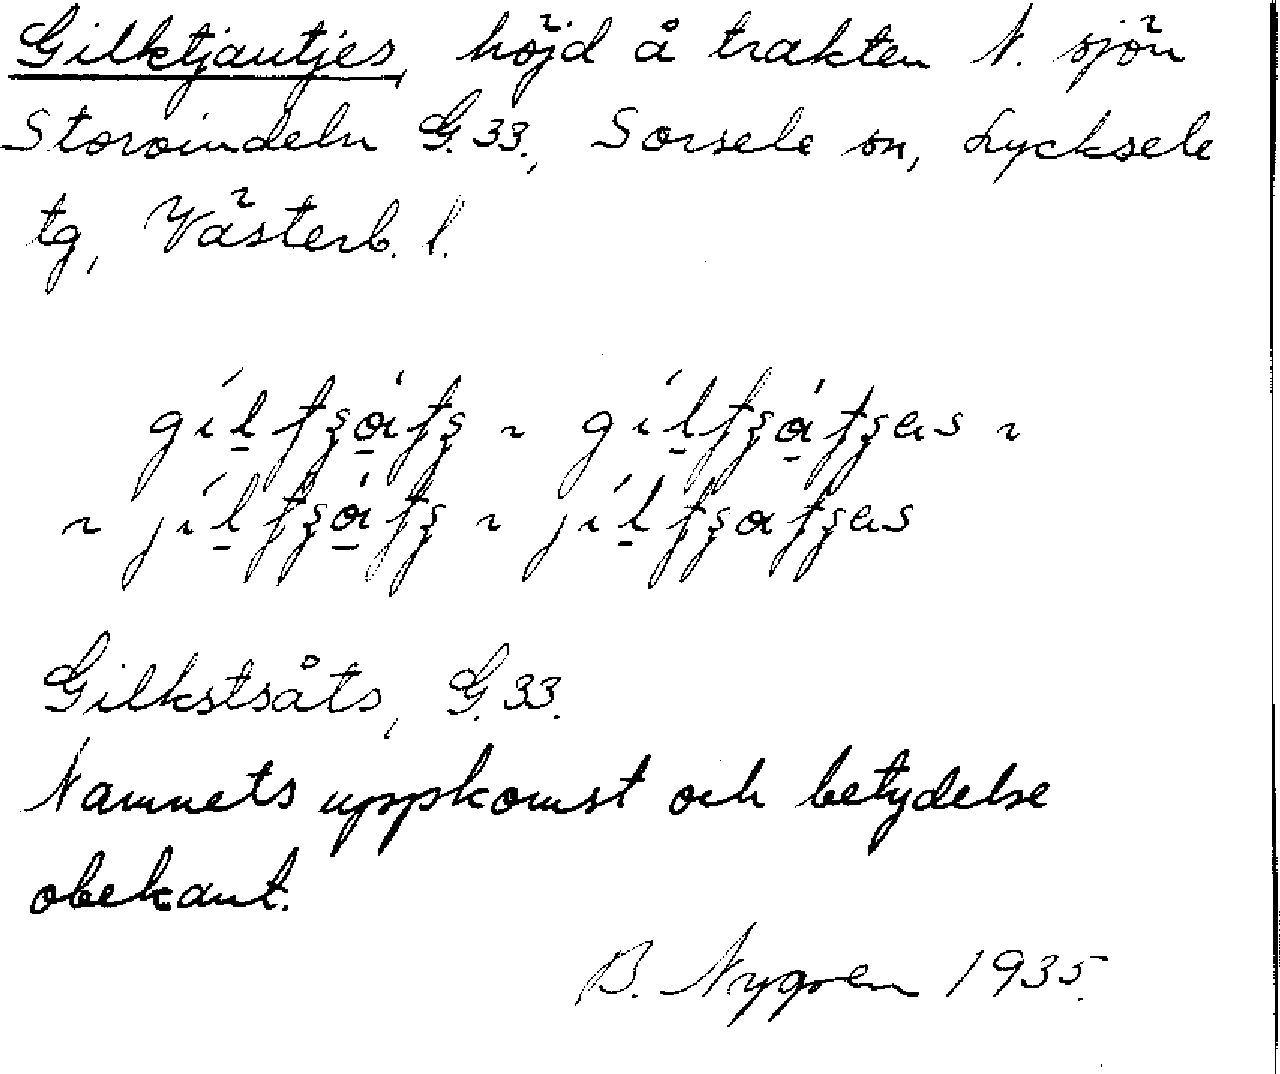 Gilktjautjes, höjd å trakten N. sjön
Storvindeln G.33., Sorsele sn, Lycksele
tg, Västerb. l.
Gilkstsåts, G.33.
Namnets uppkomst och betydelse
obekant.
B. Nygren 1935.